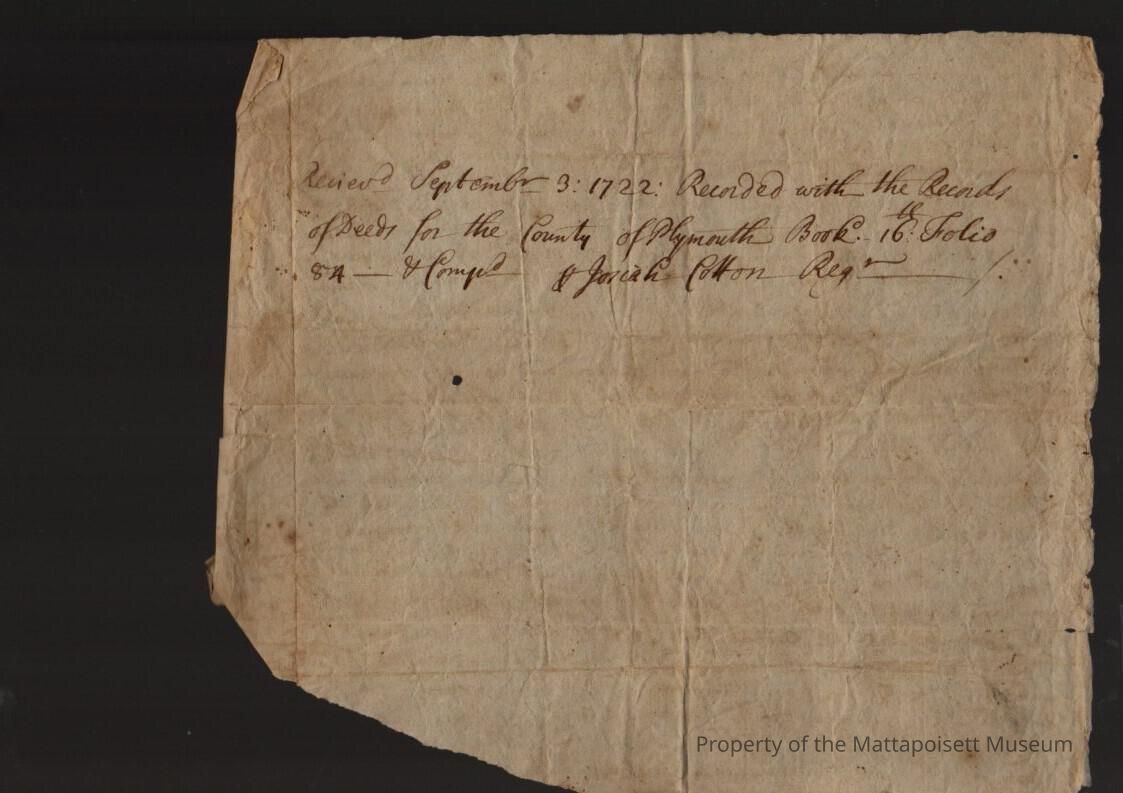 Reciev^d Septemb^r 3: 1722: Recorded with the Records
of Deeds for the County of Plymouth Book. 16^th: Folio
84 — & Comp^d ⅌ Josiah Cotton Reg^r —— /:
Property of the Mattapoisett Museum